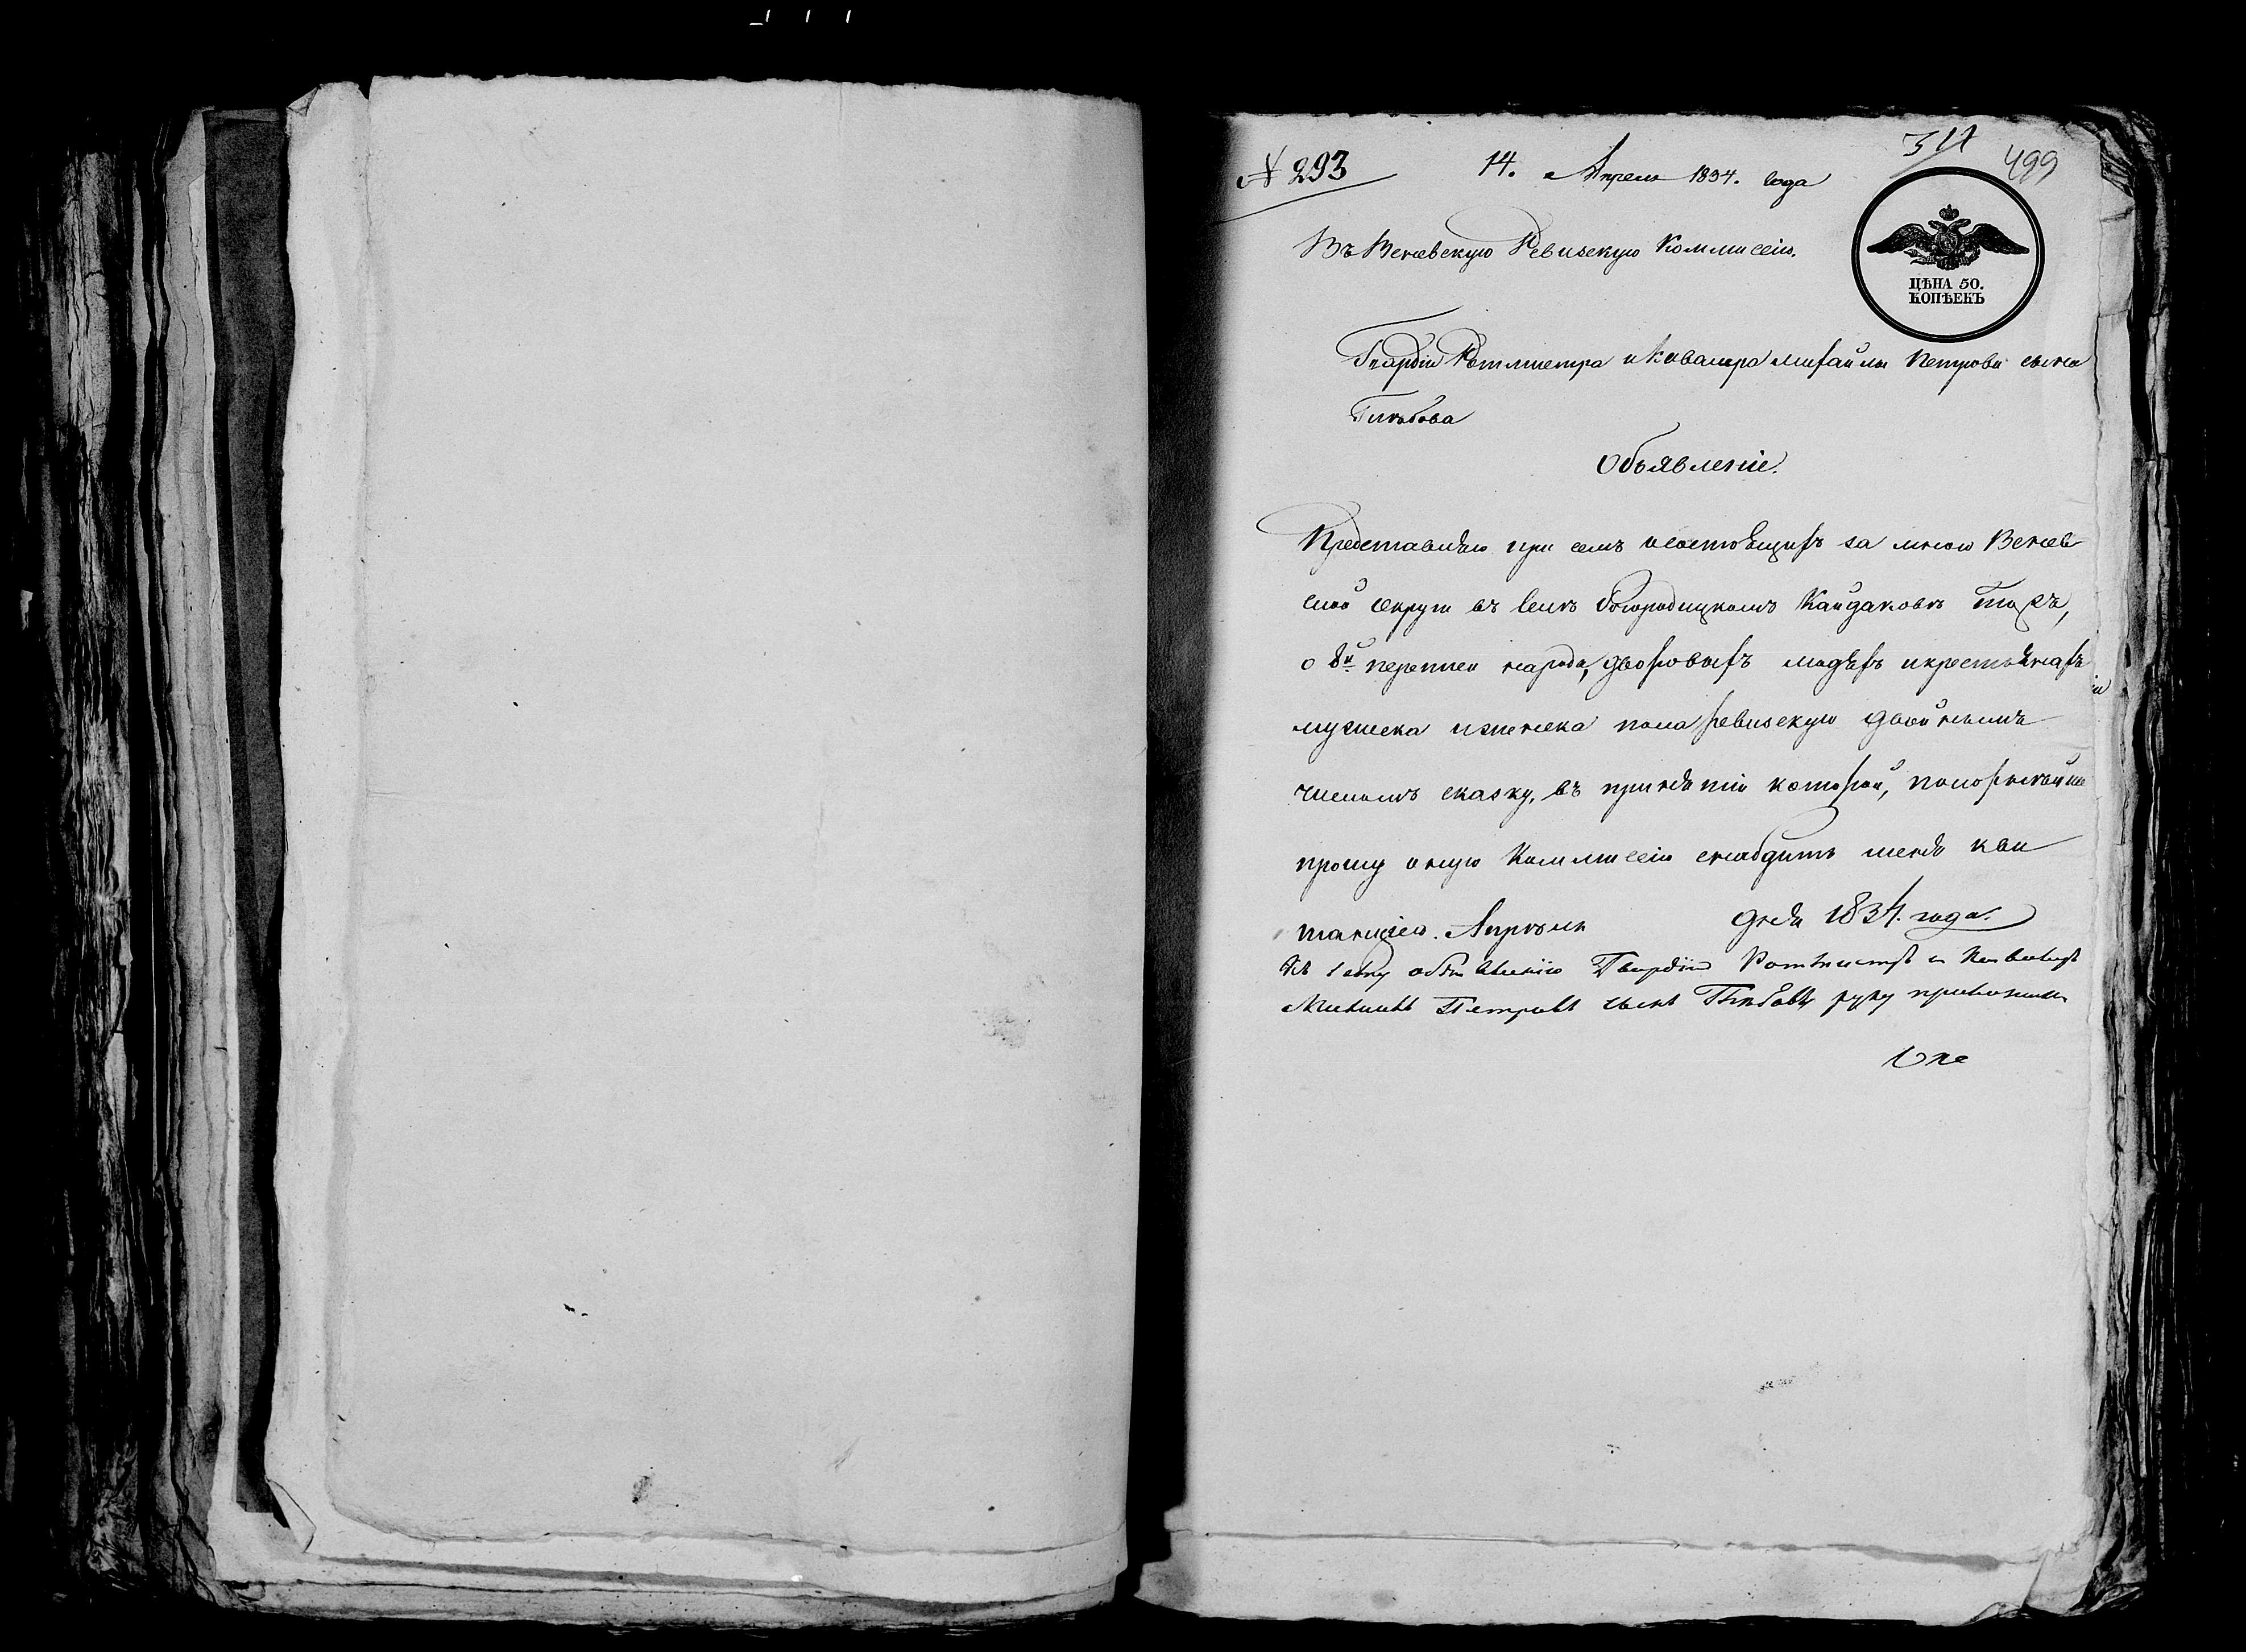 № 293
14. Апреля 1834. года
311
499
Въ Веневскую Ревизскую Коммисію.
ЦѢНА 50.
КОПѢЕКЪ
Гвардіи Ротмистра и Кавалера михайлы Петрова сына
Глѣбова
Объявленіе.
Представляю при семъ о состоящихъ за мною Венев
ской округи въ селѣ Богородицкомъ Кайдаковѣ тожъ,
о 8й переписи народа, дворовыхъ людѣхъ и крестьянахъ
мужеска и женска пола ревизскую двойнымъ
числомъ сказку, въ принятіи которой, покорнѣйше
прошу оную Коммисію снабдить меня кви
танціею. Апрѣля дня 1834. года.
Къ сему объявленію Гвардіи Ротмистръ и Кавалеръ
Михаилъ Петровъ сынъ Глѣбовъ руку приложилъ